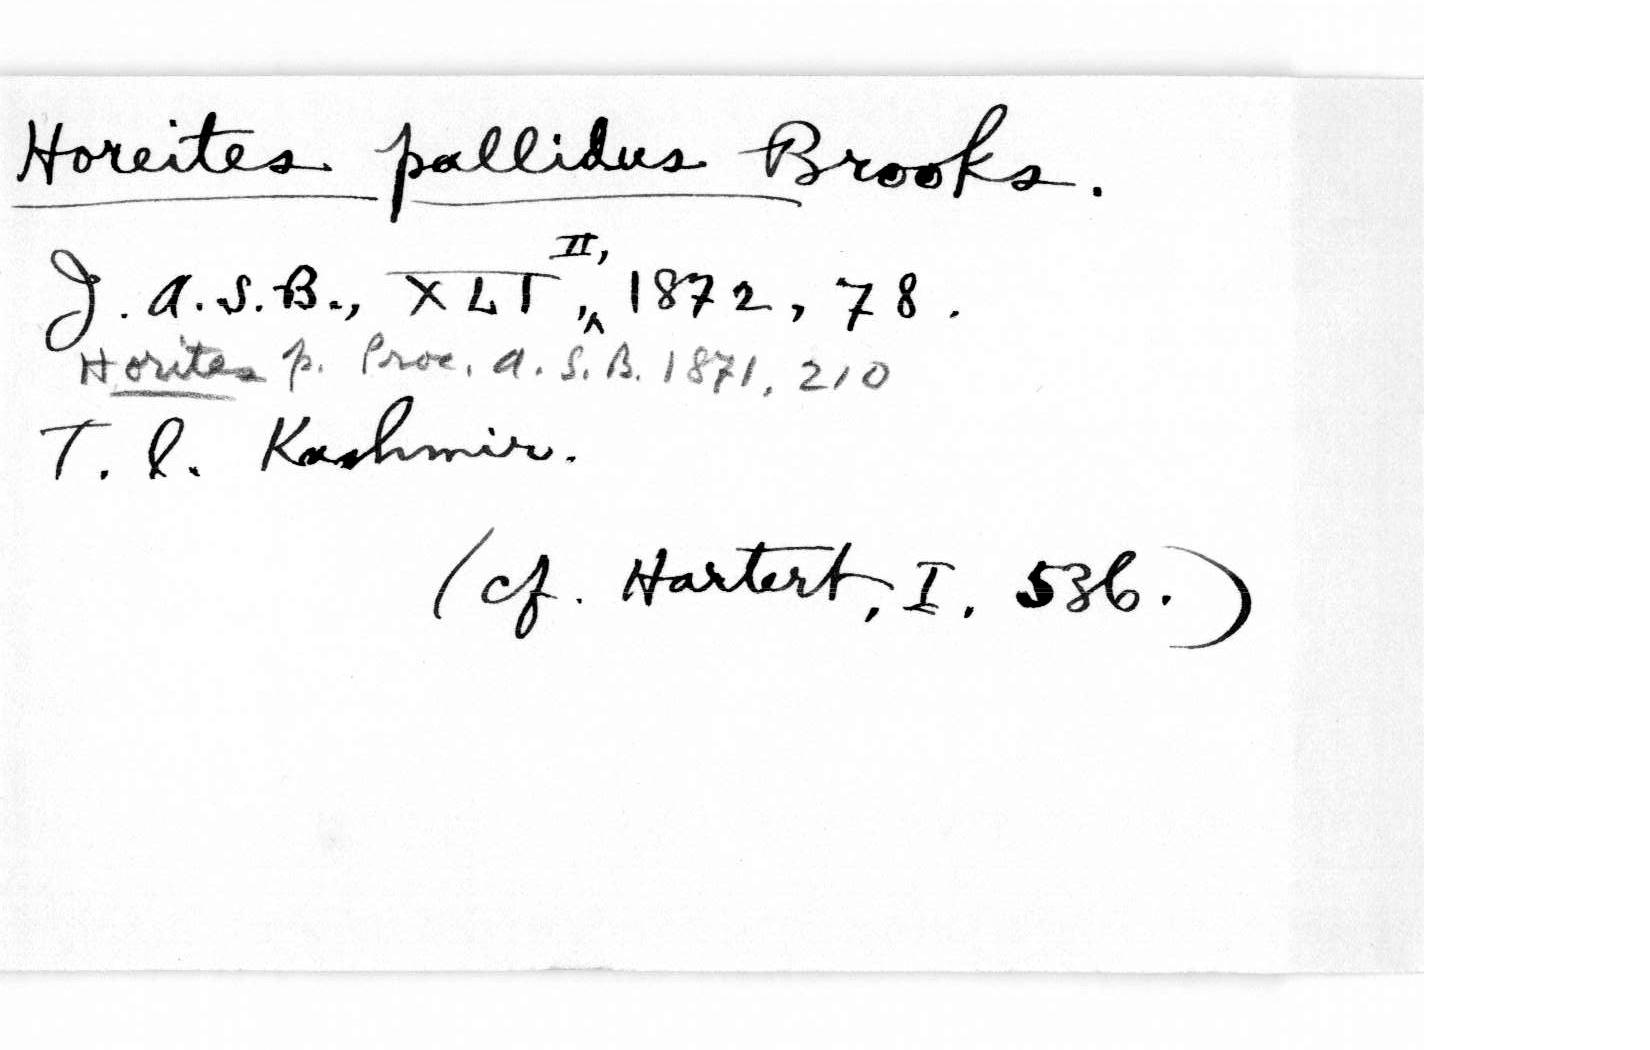 Horeites pallidus Brooks.
J. A. S. B., XLI, II, 1872, 78.
Horites p. Proc. A. S. B. 1871, 210
T. l. Kashmir.
(cf. Hartert, I. 536.)